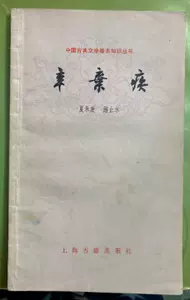 中国古典文学基本知识丛书
辛棄疾
夏承焘 游止水
上海古籍出版社